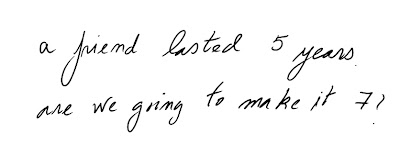 a friend lasted 5 years.
are we going to make it 7?